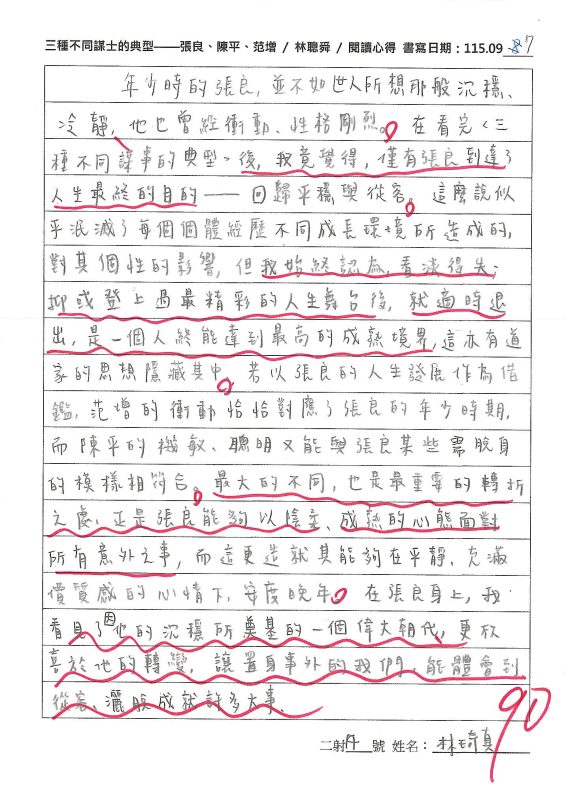 三種不同謀士的典型——張良、陳平、范增 / 林聰舜 / 閱讀心得 書寫日期：115.09 7
年少時的張良，並不如世人所想那般沉穩、
冷靜，他也曾經衝動、性格剛烈。在看完《三
種不同謀事的典型》後，我竟覺得，僅有張良到達了
人生最終的目的——回歸平穩與從容。這麼說似
乎泯滅了每個個體經歷不同成長環境所造成的，
對其個性的影響，但我始終認為，看淡得失；
抑或登上過最精彩的人生舞台後，就適時退
出，是一個人終能達到最高的成熟境界，這亦有道
家的思想隱藏其中。若以張良的人生發展作為借
鑑，范增的衝動恰恰對應了張良的年少時期，
而陳平的機敏、聰明又能與張良某些需脫身
的模樣相符合。最大的不同，也是最重要的轉折
之處，正是張良能夠以陰柔、成熟的心態面對
所有意外之事，而這更造就其能夠在平靜、充滿
價質感的心情下，安度晚年。在張良身上，我
看見了因他的沉穩所奠基的一個偉大朝代，更欣
喜於他的轉變，讓置身事外的我們，能體會到
從容、灑脫成就許多大事。
90
二射 號 姓名：林琦真